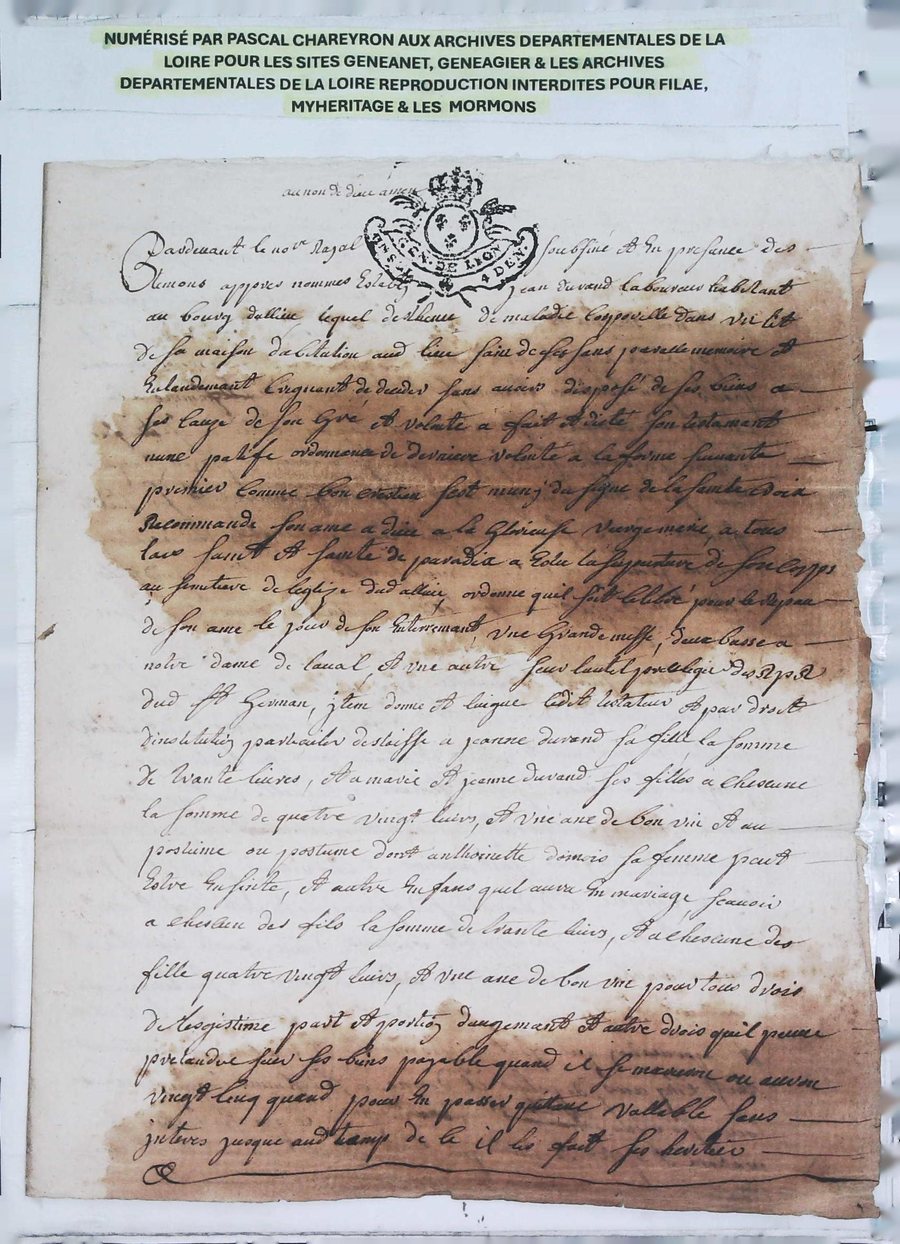 NUMÉRISÉ PAR PASCAL CHAREYRON AUX ARCHIVES DEPARTEMENTALES DE LA
LOIRE POUR LES SITES GENEANET, GENEAGIER & LES ARCHIVES
DEPARTEMENTALES DE LA LOIRE REPRODUCTION INTERDITES POUR FILAE,
MYHERITAGE & LES MORMONS
au non de dieu amen
GEN. DE LION
4 DEN.
Pardevant le nore Rayal soubsiné et en presance des
temons appres nommes Estably jean durand laboureur habitant
au bourg dallieu lequel detheneu de maladie corporelle dans un lit
de sa maison dabitation aud lieu sain de ses sans parolle memoire et
Entandemant Creignant de deceder sans avoir disposé de ses biens a
ses cauze de son Gré et volonté a fait et dicté son testamant
nuncupatife ordonnance de derniere volonté a la forme suivante
premier comme bon cretien sest muny du signe de la sainte croix
Recommandé son ame a dieu a la Glorieuse viergemerie, a tous
les saint et sainte de paradix a Eslu la sepulture de son corps
au semetiere de leglize dud allieu ordonne quil soit cellebré pour le Repau
de son ame le jour de son Enterremant, une Grande messe, deux basse a
notre dame de laval, et une autre seur lautel previlegié des
dud st German, jtem donne et leigue ledit testateur et par droit
dinstitution particulier delaisse a jeanne durand sa fille la somme
de trante livres, et a marie et jeanne durand ses filles a chescune
la somme de quatre vingt livres, et une ane de bon vin et au
postume ou postume dont anthoinette domois sa femme peut
Estre Ensinte, et autre Enfans quel aura En mariage scavoir
a chescun des fils la somme de trante livres, et a chescune des
fille quatre vingt livres, et une ane de bon vin pour tous drois
de legistime part et portion daugemant et autre drois quil peuve
pretandre seur ses biens payable quand il se mariron ou auron
vingt cinq quand pour En passer quitance vallable sans
interes jusque aud tamp de ce il les fait ses heritier